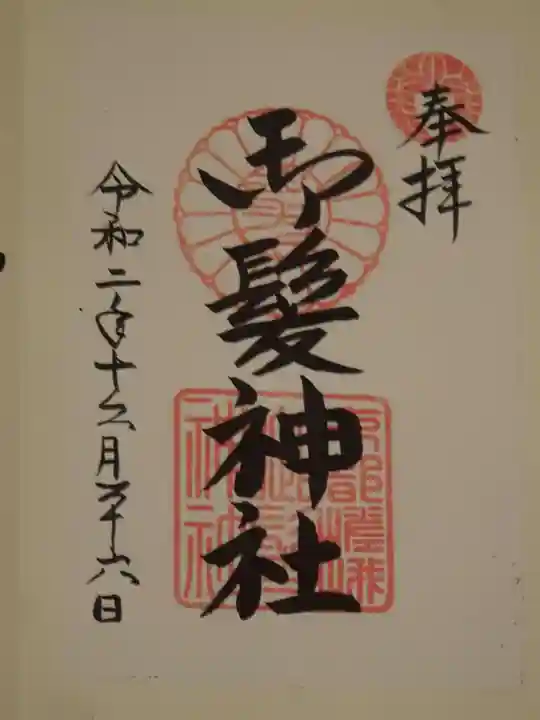 奉拝
御髪神社
令和二年十二月二十六日
京都嵯峨
御髪神社